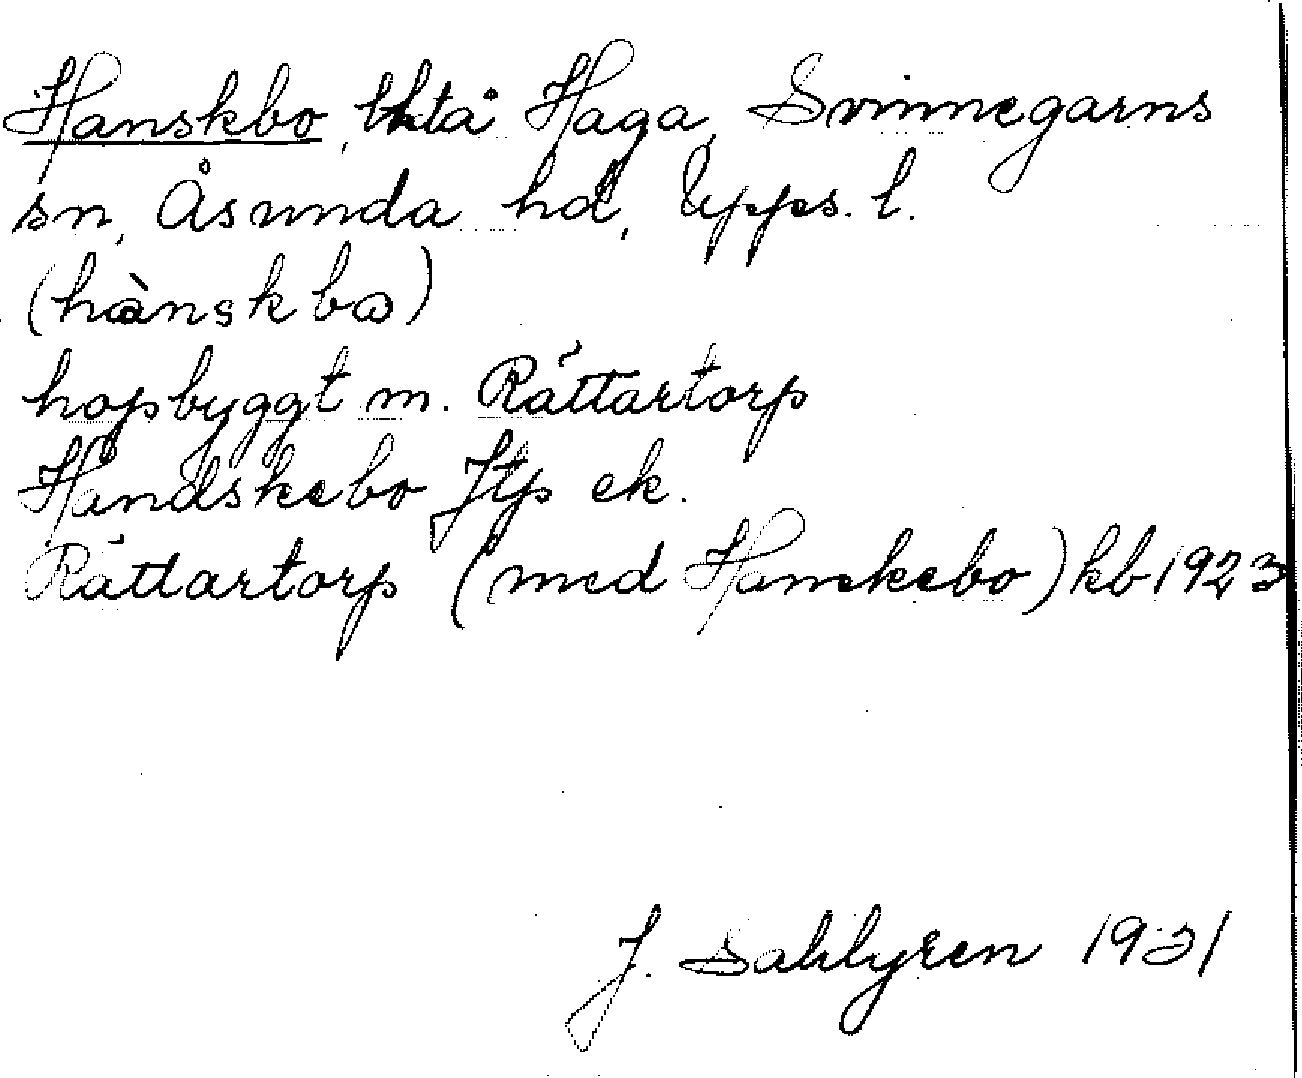 Hanskbo, lht å Haga, Svinnegarns
sn, Åsunda hd, Upps. l.
(hànskbω)
hopbyggt m. Rättartorp
Handskebo Jtp ek.
Rättartorp (med Hanskebo) kb 1923
J. Sahlgren 1931